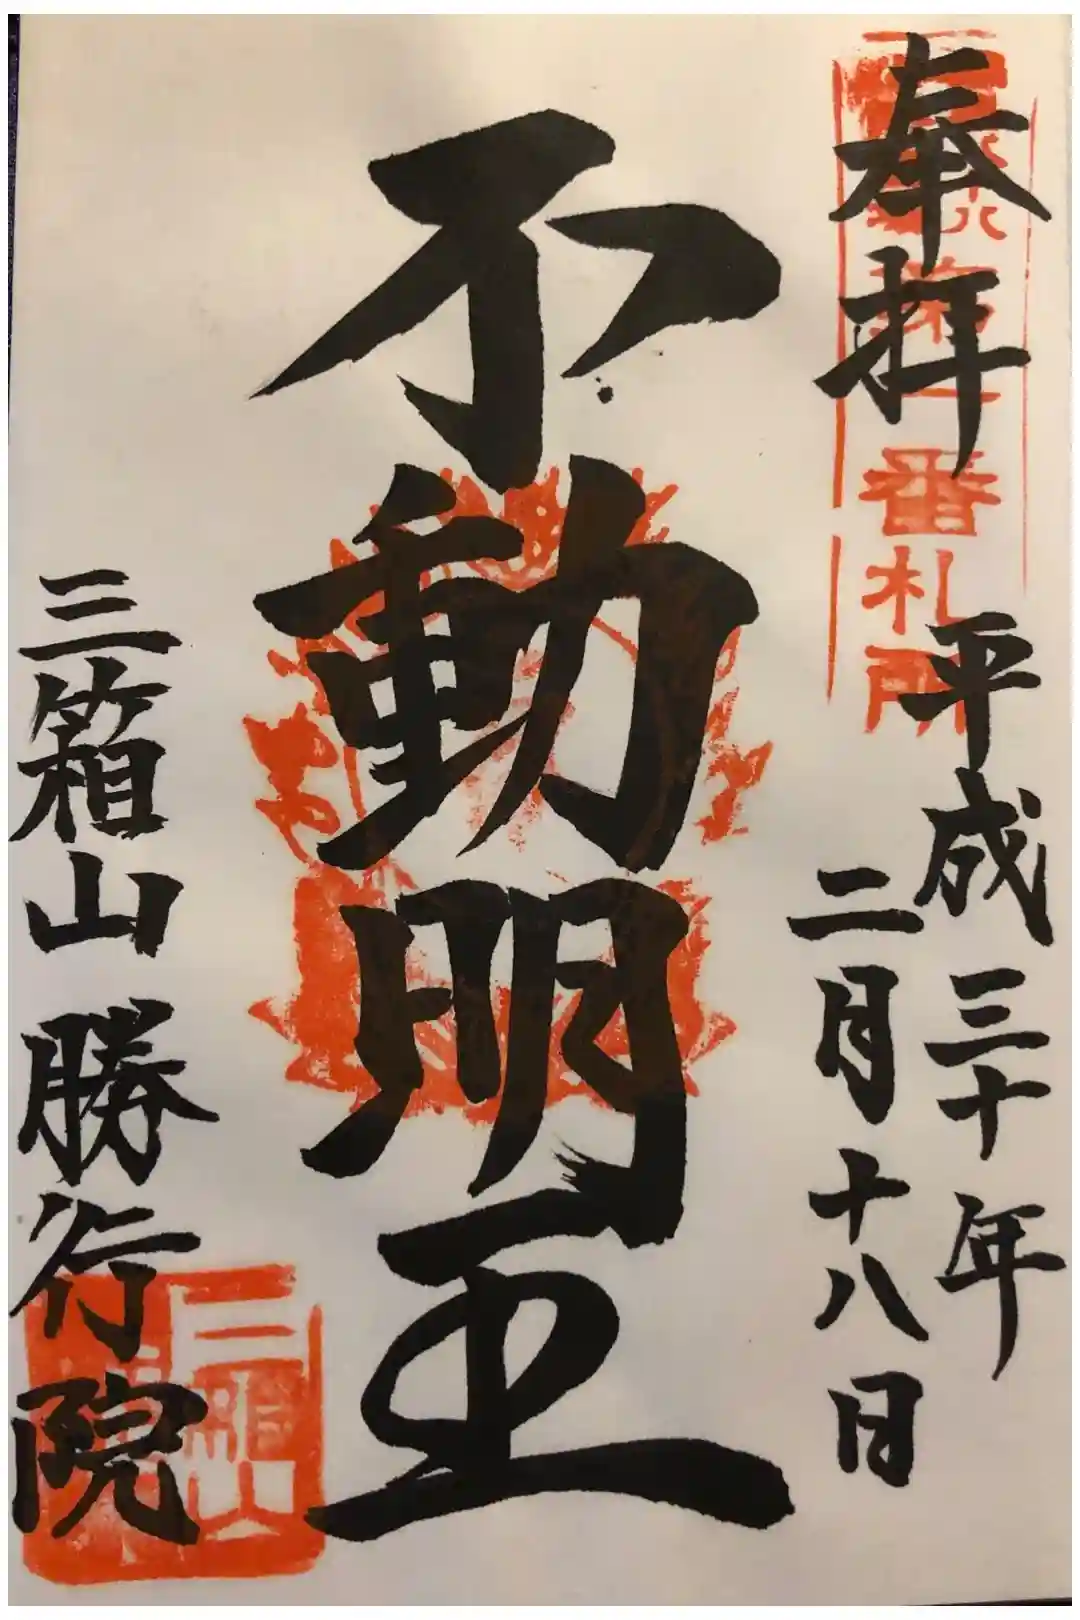 奉拝
番札所
平成三十年
二月十八日
不動明王
三箱山勝行院